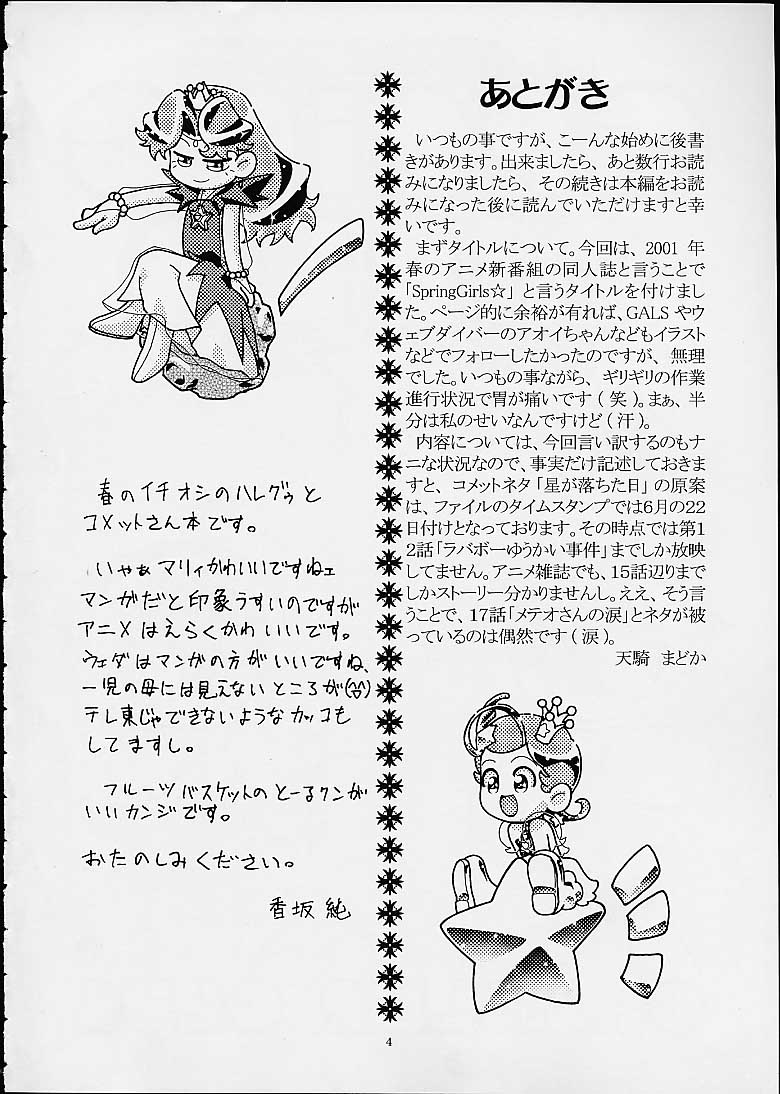 あとがき
いつもの事ですが、こーんな始めに後書
きがあります。出来ましたら、あと数行お読
みになりましたら、その続きは本編をお読
みになった後に読んでいただけますと幸
いです。
まずタイトルについて。今回は、2001 年
春のアニメ新番組の同人誌と言うことで
「SpringGirls☆」と言うタイトルを付けまし
た。ページ的に余裕が有れば、GALS やウ
ェブダイバーのアオイちゃんなどもイラスト
などでフォローしたかったのですが、無理
でした。いつもの事ながら、ギリギリの作業
進行状況で胃が痛いです ( 笑 )。まぁ、半
分は私のせいなんですけど ( 汗 )。
内容については、今回言い訳するのもナ
ニな状況なので、事実だけ記述しておきま
すと、コメットネタ「星が落ちた日」の原案
は、ファイルのタイムスタンプでは6月の22
日付けとなっております。その時点では第1
2話「ラバボーゆうかい事件」までしか放映
してません。アニメ雑誌でも、15話辺りまで
しかストーリー分かりませんし。ええ、そう言
うことで、17話「メテオさんの涙」とネタが被
っているのは偶然です ( 涙 )。
天騎 まどか
春のイチオシのハレグゥと
コメットさん本です。
いやぁ マリィかわいいですねェ
マンガだと印象うすいのですが
アニメはえらくかわいいです。
ウェダはマンガの方がいいですね、
一児の母には見えないところが(笑)
テレ東じゃできないようなカッコも
してますし。
フルーツバスケットのとーるクンが
いいカンジです。
おたのしみください。
香坂 純
4